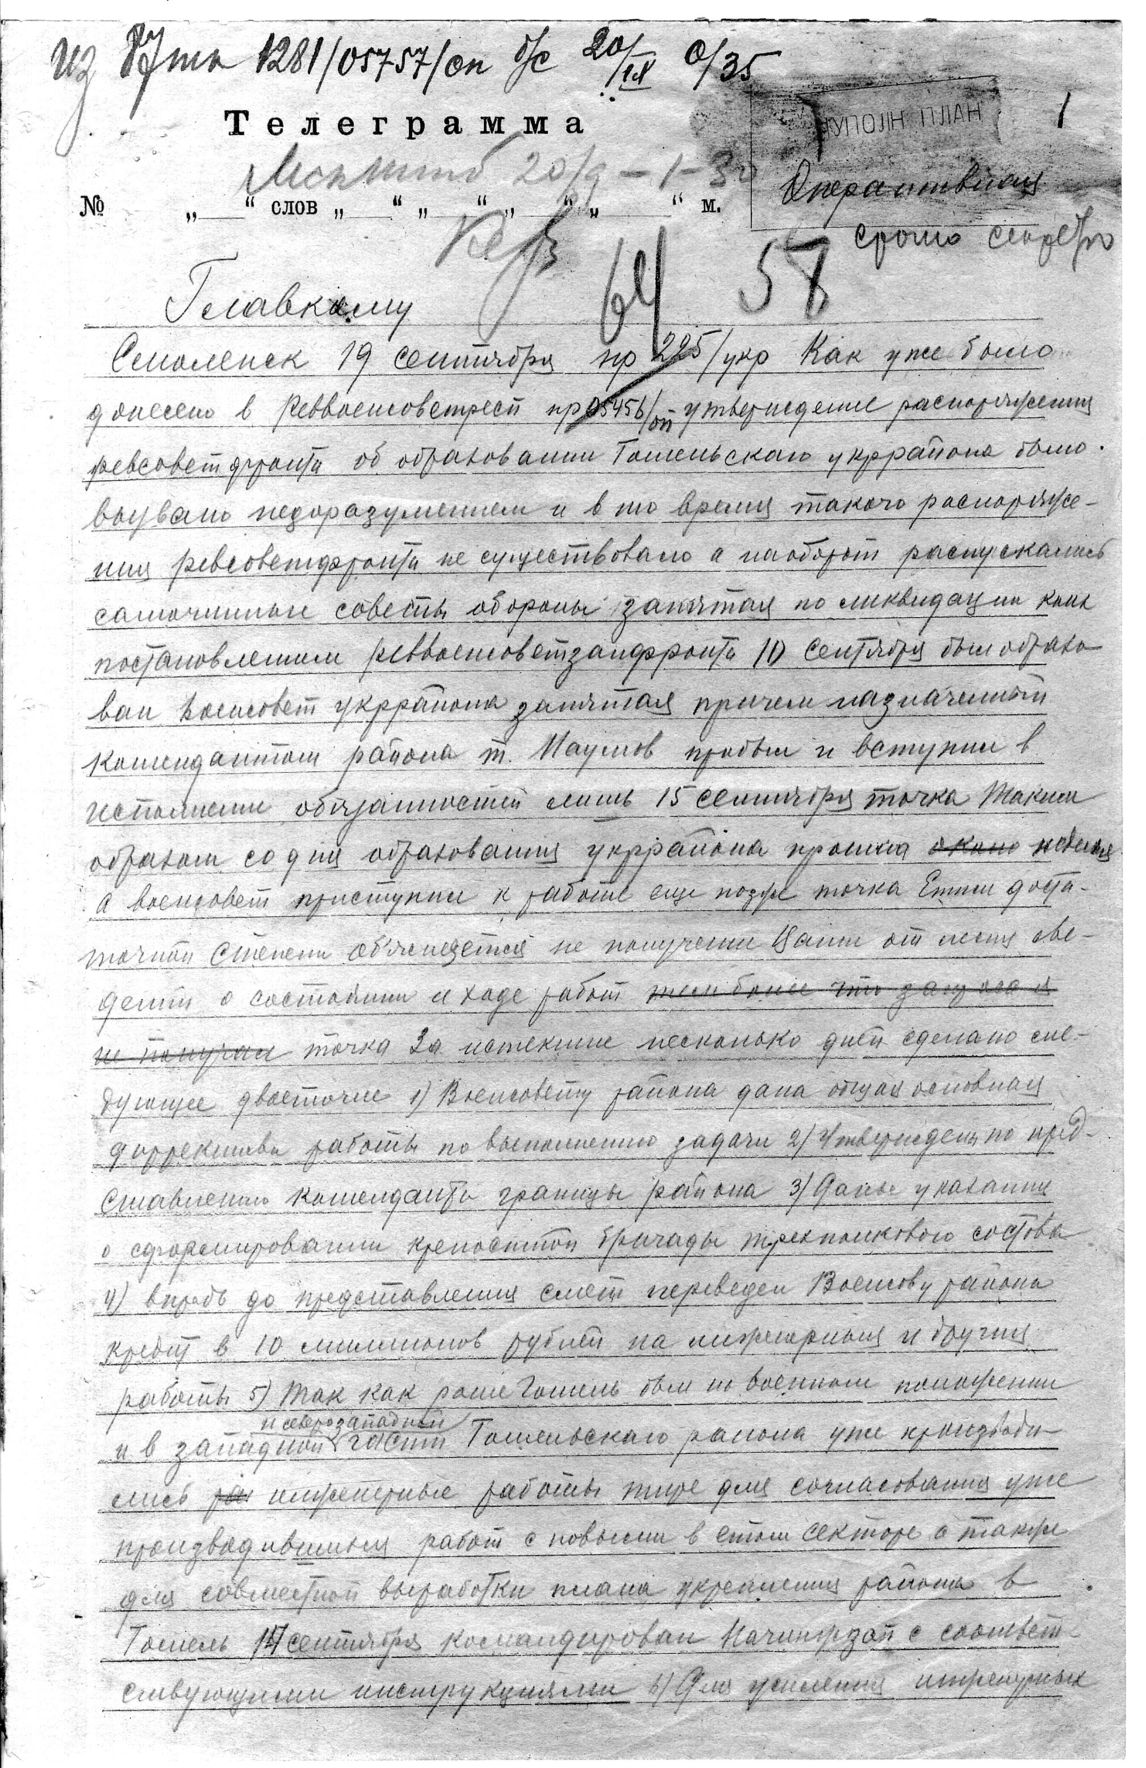 из 1281/05757/оп б/с 20/IX 0/35
Телеграмма
20/9 – 1 – 30
№ „ “ слов „ “ „ “ „ “ „ “ м.
1
Оперативная
срочно секретно
64 58
Главкому
Смоленск 19 сентября нр 225/укр Как уже было
донесено в Реввоенсоветресп нр 05456/оп утверждение распоряжения
ревсоветфронта об образовании Гомельскаго укррайона было
вызвано недоразумением и в то время такого распоряже-
ния ревсоветфронта не существовало а наоборот распускались
самочинные советы обороны запятая по ликвидации коих
постановлением реввоенсоветзапфронта 10 сентября был образо
ван Военсовет укррайона запятая причем назначенный
комендантом района т. Наумов прибыл и вступил в
исполнение обязанностей лишь 15 сентября точка Таким
образом со дня образования укррайона прошла около неделя
а военсовет приступил к работе еще позже точка Етим доста-
точной степени об'ясняется не получение Вами от меня све-
дений о состоянии и ходе работ тем более что запроса я
не получал точка За истекшие несколько дней сделано сле-
дующее двоеточие 1) Военсовету района дана общая основная
дирректива работы по выполнению задачи 2) Утверждены по пред-
ставлению коменданта границы района 3) Даны указания
о сформировании крепостной бригады трехполкового состава
4) впредь до представления смет переведен Военсову района
кредит в 10 миллионов рублей на инженерныя и другия
работы 5) Так как ранее Гомель был на военном положении
и северозападной
и в западной части Гомельскаго района уже производи-
лись ра инженерные работы тире для согласования уже
производившихся работ с новыми в етом секторе а также
для совместной выработки плана укрепления района в
Гомель 17 сентября командирован Начинжзап с соответ
ствующими инструкциями 6) Для усиления инженерных